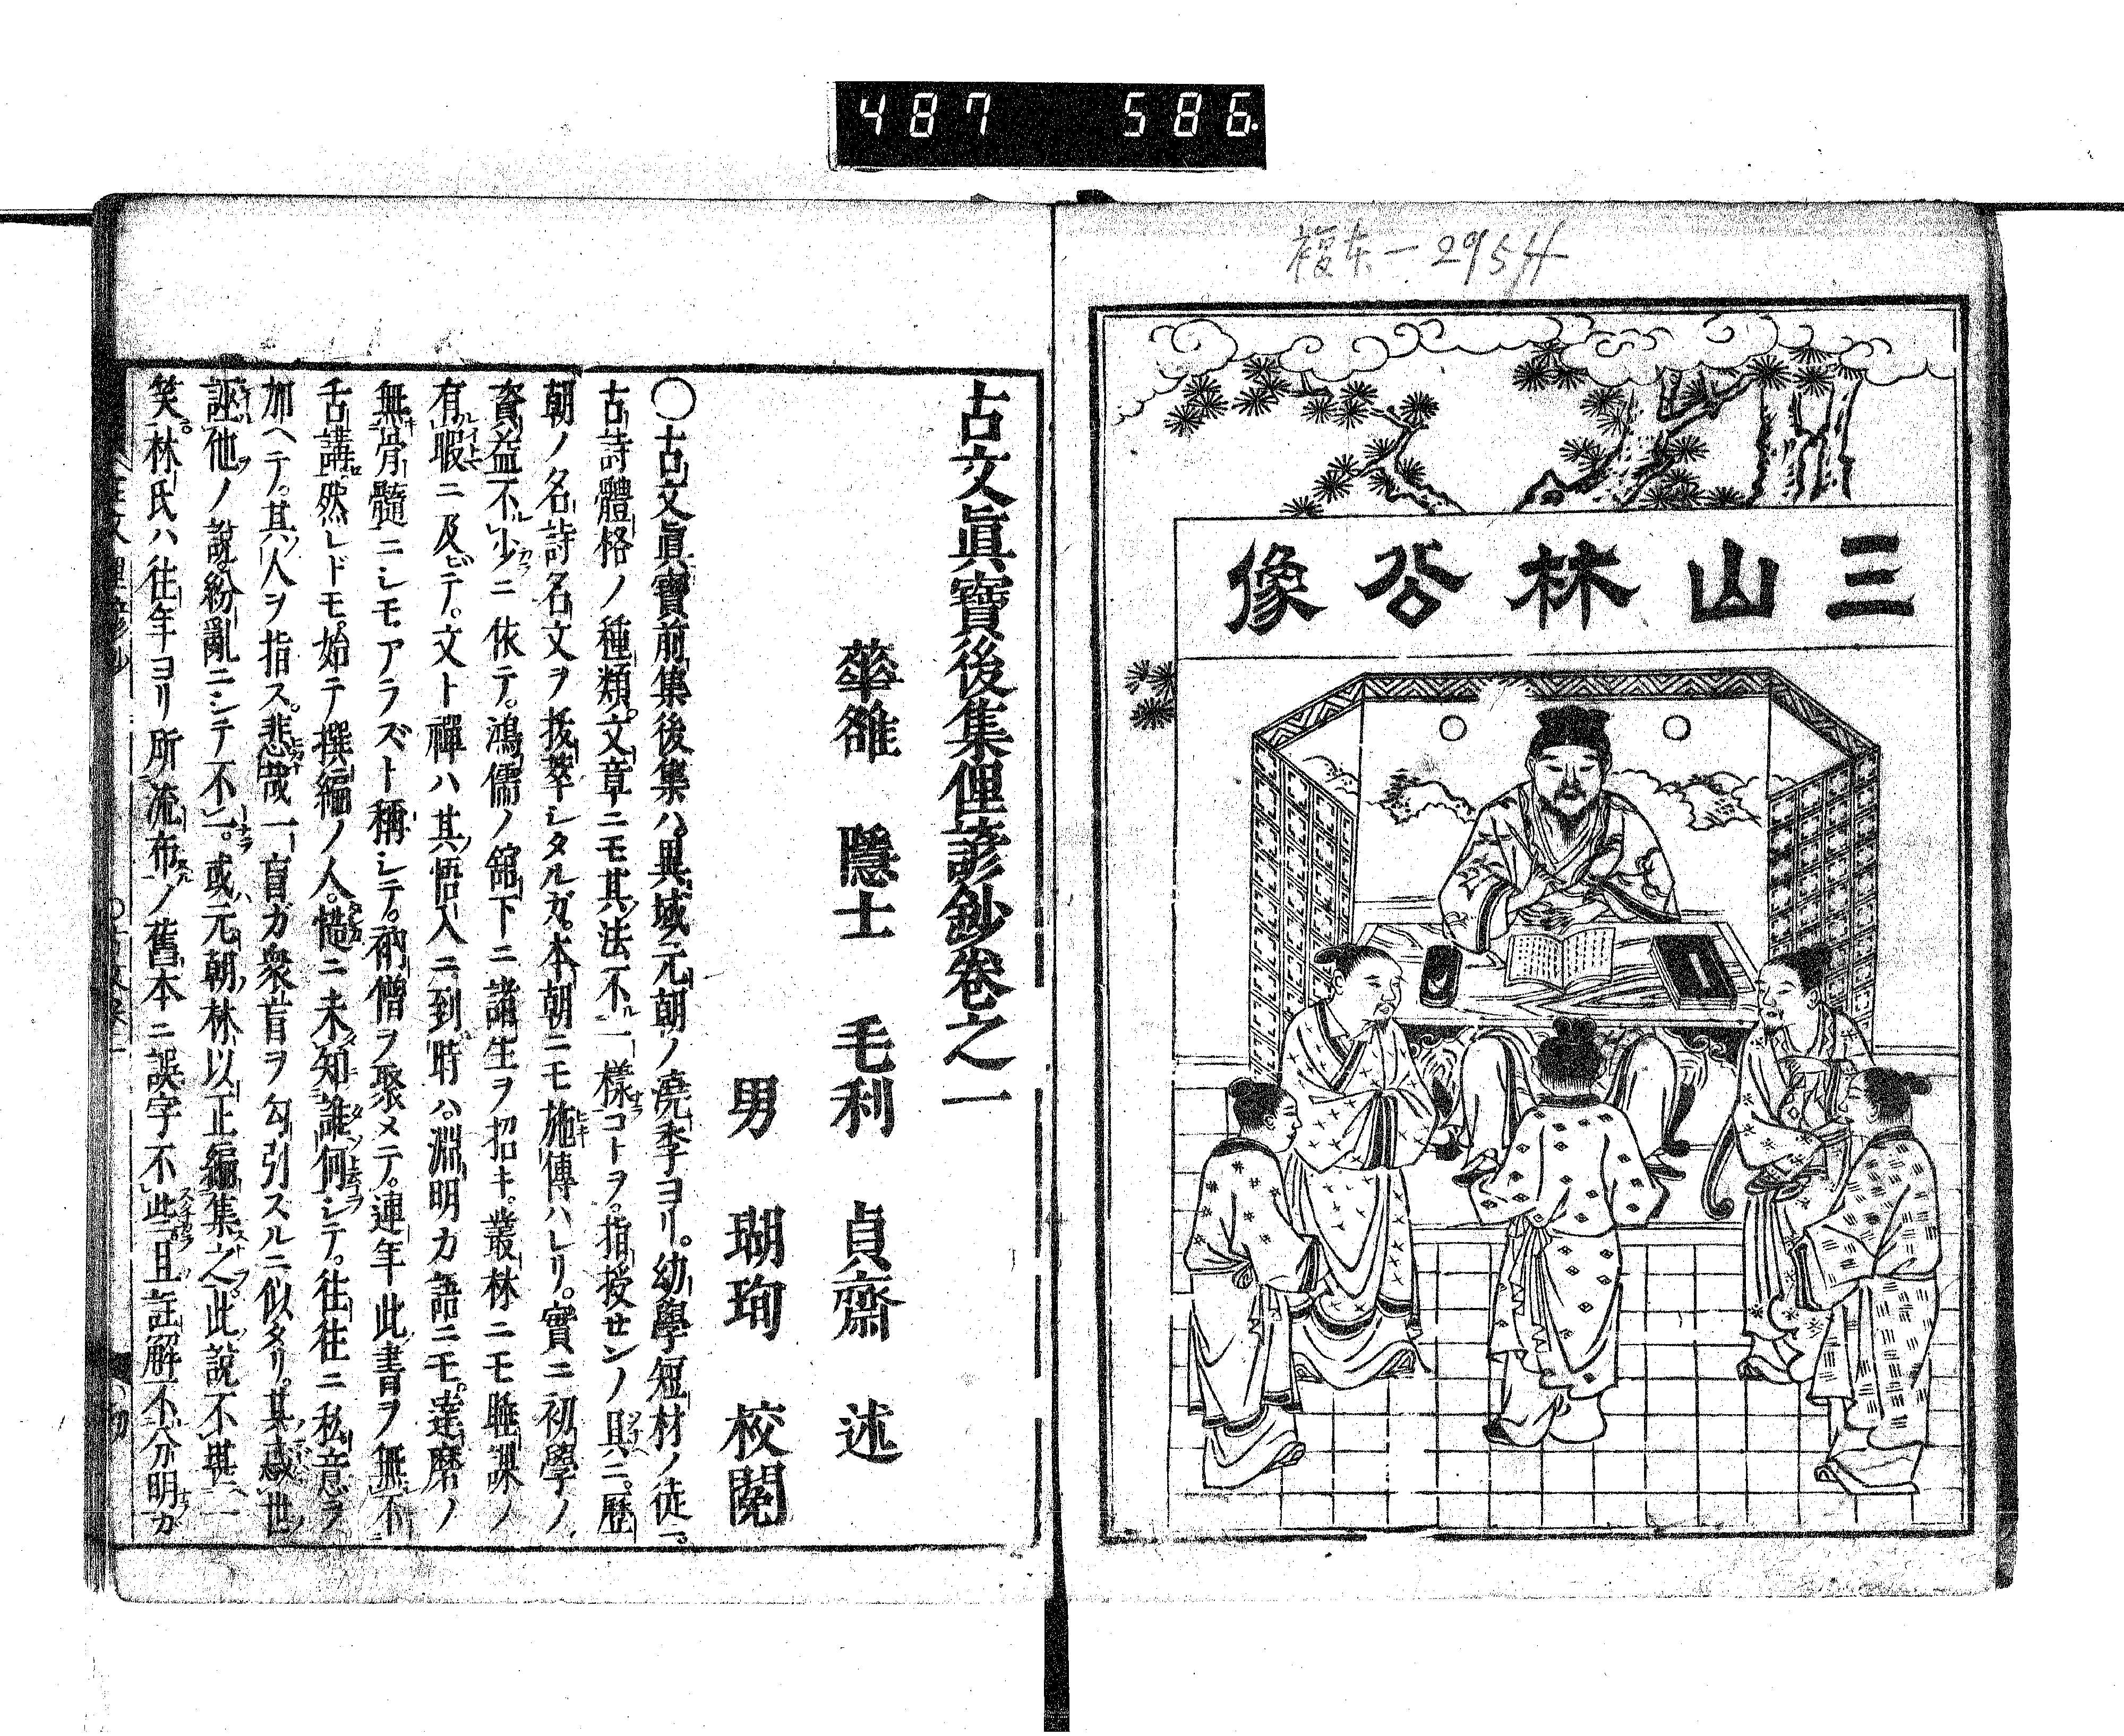 487 586
複本一2954
三山林公像
古文眞寶後集俚諺鈔卷之一
華雒 隱士 毛利 貞齋 述
男 瑚珣 校閲
〇古文眞寶前集後集ハ異域元朝ノ澆季ヨリ。幼學短材ノ徒ニ。
古詩體格ノ種類。文章ニモ其法不一樣コトヲ。指授センノ具ニ。歷
朝ノ名詩名文ヲ拔萃シタルガ。本朝ニモ施傳ハレリ。實ニ初學ノ
資益不少ニ依テ。鴻儒ノ館下ニ諸生ヲ招キ。叢林ニモ睡課ノ
有暇ニ及ビテ。文ト禪ハ其悟入ニ到時ハ。淵明カ語ニモ。達磨ノ
無骨髓ニシモアラズト稱シテ。衲僧ヲ聚メテ。連年此書ヲ無不
舌講然レドモ。始テ撰編ノ人。慥ニ未知誰何シテ。往往ニ私意ヲ
加ヘテ。其人ヲ指ス。悲哉一盲ガ衆盲ヲ勾引スルニ似タリ。其惑世
誣他ノ說紛亂ニシテ不一。或元朝林以正編集之。此說不堪一
笑。林氏ハ往年ヨリ所流布ノ舊本ニ誤字不些且註解不分明カ